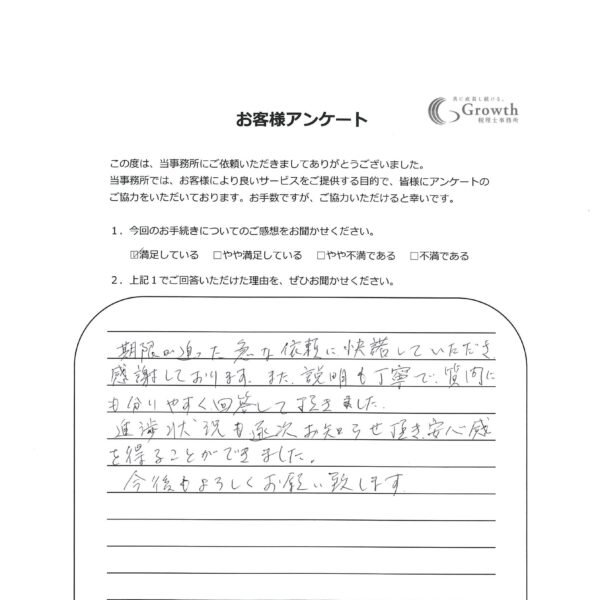 共に成長し続ける。
Growth
税理士事務所
お客様アンケート
この度は、当事務所にご依頼いただきましてありがとうございました。
当事務所では、お客様により良いサービスをご提供する目的で、皆様にアンケートの
ご協力をいただいております。お手数ですが、ご協力いただけると幸いです。
1．今回のお手続きについてのご感想をお聞かせください。
☑満足している　□やや満足している　□やや不満である　□不満である
2．上記1でご回答いただけた理由を、ぜひお聞かせください。
期限が迫った急な依頼に快諾していただき
感謝しております。また、説明も丁寧で、質問に
も分りやすく回答して頂きました。
進捗状況も逐次お知らせ頂き、安心感
を得ることができました。
今後もよろしくお願い致します